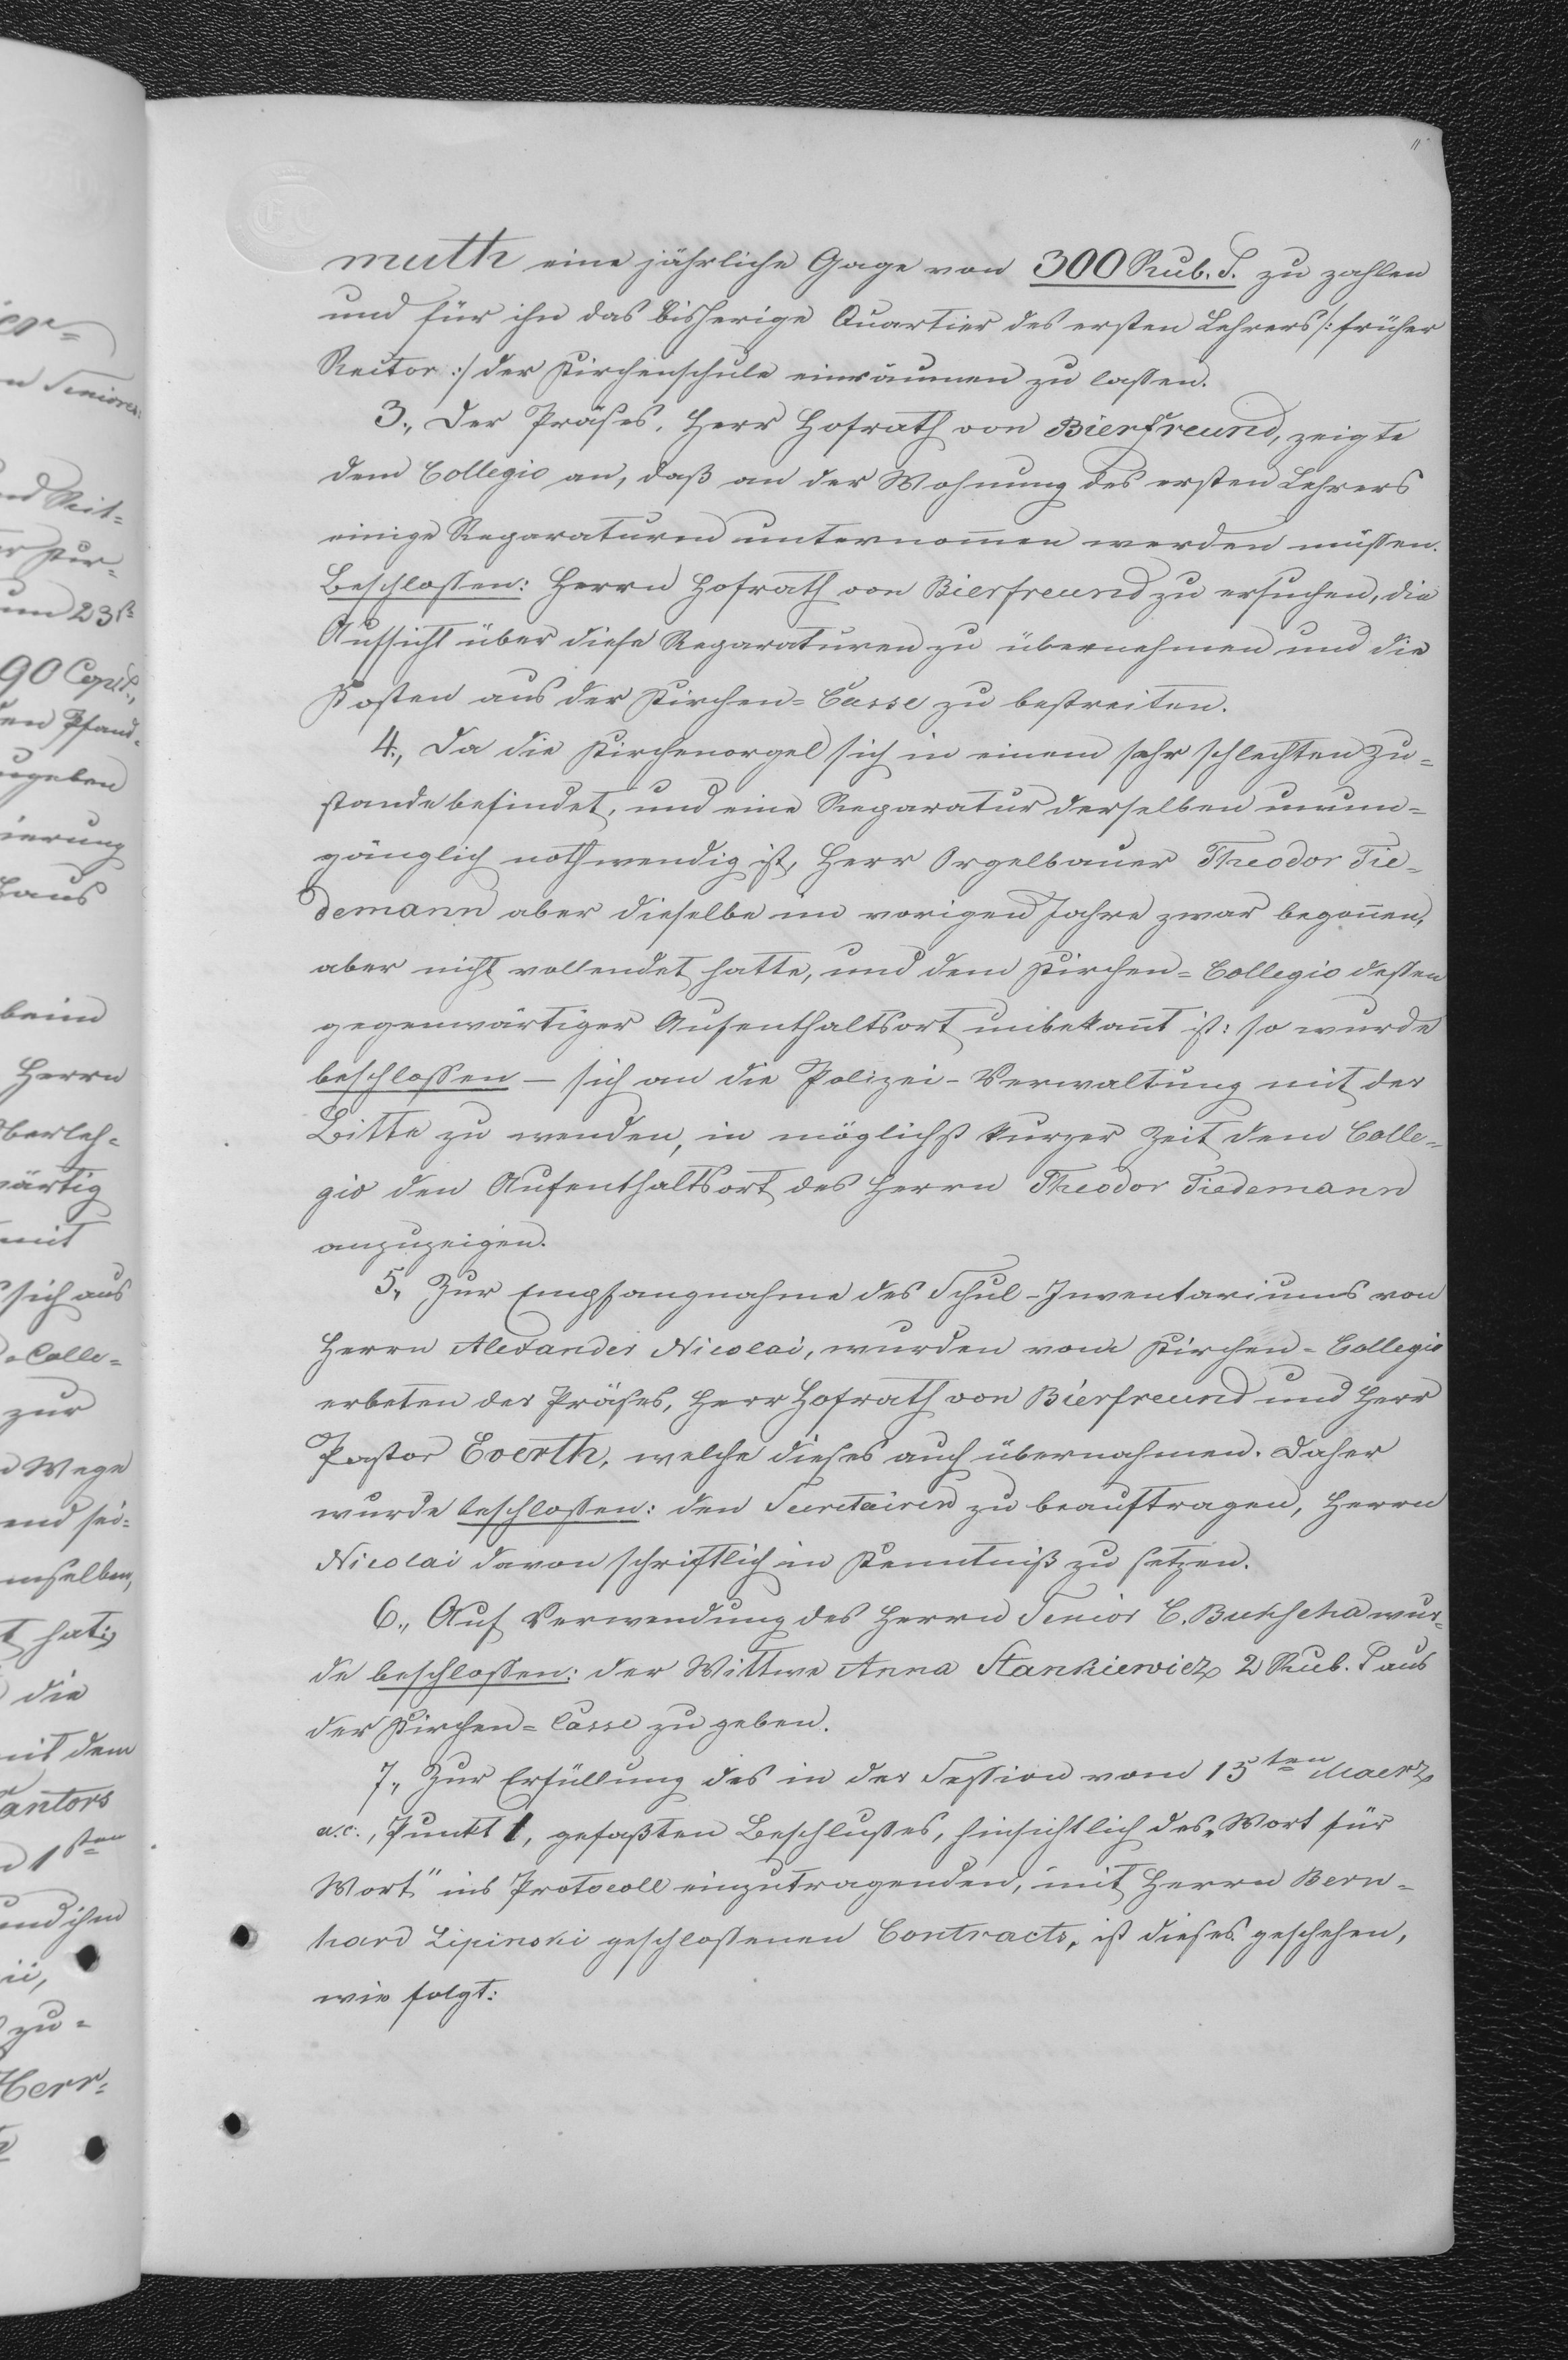 muth eine jährliche Gage von 300 Rub. S. zu zahlen
und für ihn das bisherige Quartier des ersten Lehrers /: früher
Rector :/ der Kirchenschule einräumen zu lassen.
3., Der Präses, Herr Hofrath von Bierfreund, zeigte
dem Collegio an, daß an der Wohnung des ersten Lehrers
einige Reparaturen unternom̄en werden müssen.
Beschlossen: Herrn Hofrath von Bierfreund zu ersuchen, die
Aufsicht über diese Reparaturen zu übernehmen und die
Kosten aus der Kirchen=Casse zu bestreiten.
4., Da die Kirchenorgel sich in einem sehr schlechten Zu=
stande befindet, und eine Reparatur derselben unum=
gänglich nothwendig ist, Herr Orgelbauer Theodor Tie=
demann aber dieselbe im vorigen Jahre zwar begon̄en,
aber nicht vollendet hatte, und dem Kirchen=Collegio dessen
gegenwärtiger Aufenthaltsort unbekan̄t ist: so wurde
beschlossen – sich an die Polizei-Verwaltung mit der
Bitte zu wenden, in möglichst kurzer Zeit dem Colle=
gio den Aufenthaltsort des Herrn Theodor Tiedemann
anzuzeigen.
5., Zur Empfangnahme des Schul-Inventariums von
Herrn Alexander Nicolai, wurden vom Kirchen=Collegio
erbeten der Präses, Herr Hofrath von Bierfreund und Herr
Pastor Everth, welche dieses auch übernahmen. Daher
wurde beschlossen: den Secretairen zu beauftragen, Herrn
Nicolai davon schriftlich in Kenntniß zu setzen.
6., Auf Verwendung des Herrn Senior C. Bukscha wur=
de beschlossen: der Wittwe Anna Stankiewicz 2 Rub. S aus
der Kirchen=Casse zu geben.
7., Zur Erfüllung des in der Session vom 15ten Maerz
a.c., Punkt 1, gefaßten Beschlußes, hinsichtlich des „Wort für
Wort" ins Protocoll einzutragenden, mit Herrn Bern=
hard Lipinski geschlossenen Contracts, ist dieses geschehen,
wie folgt: